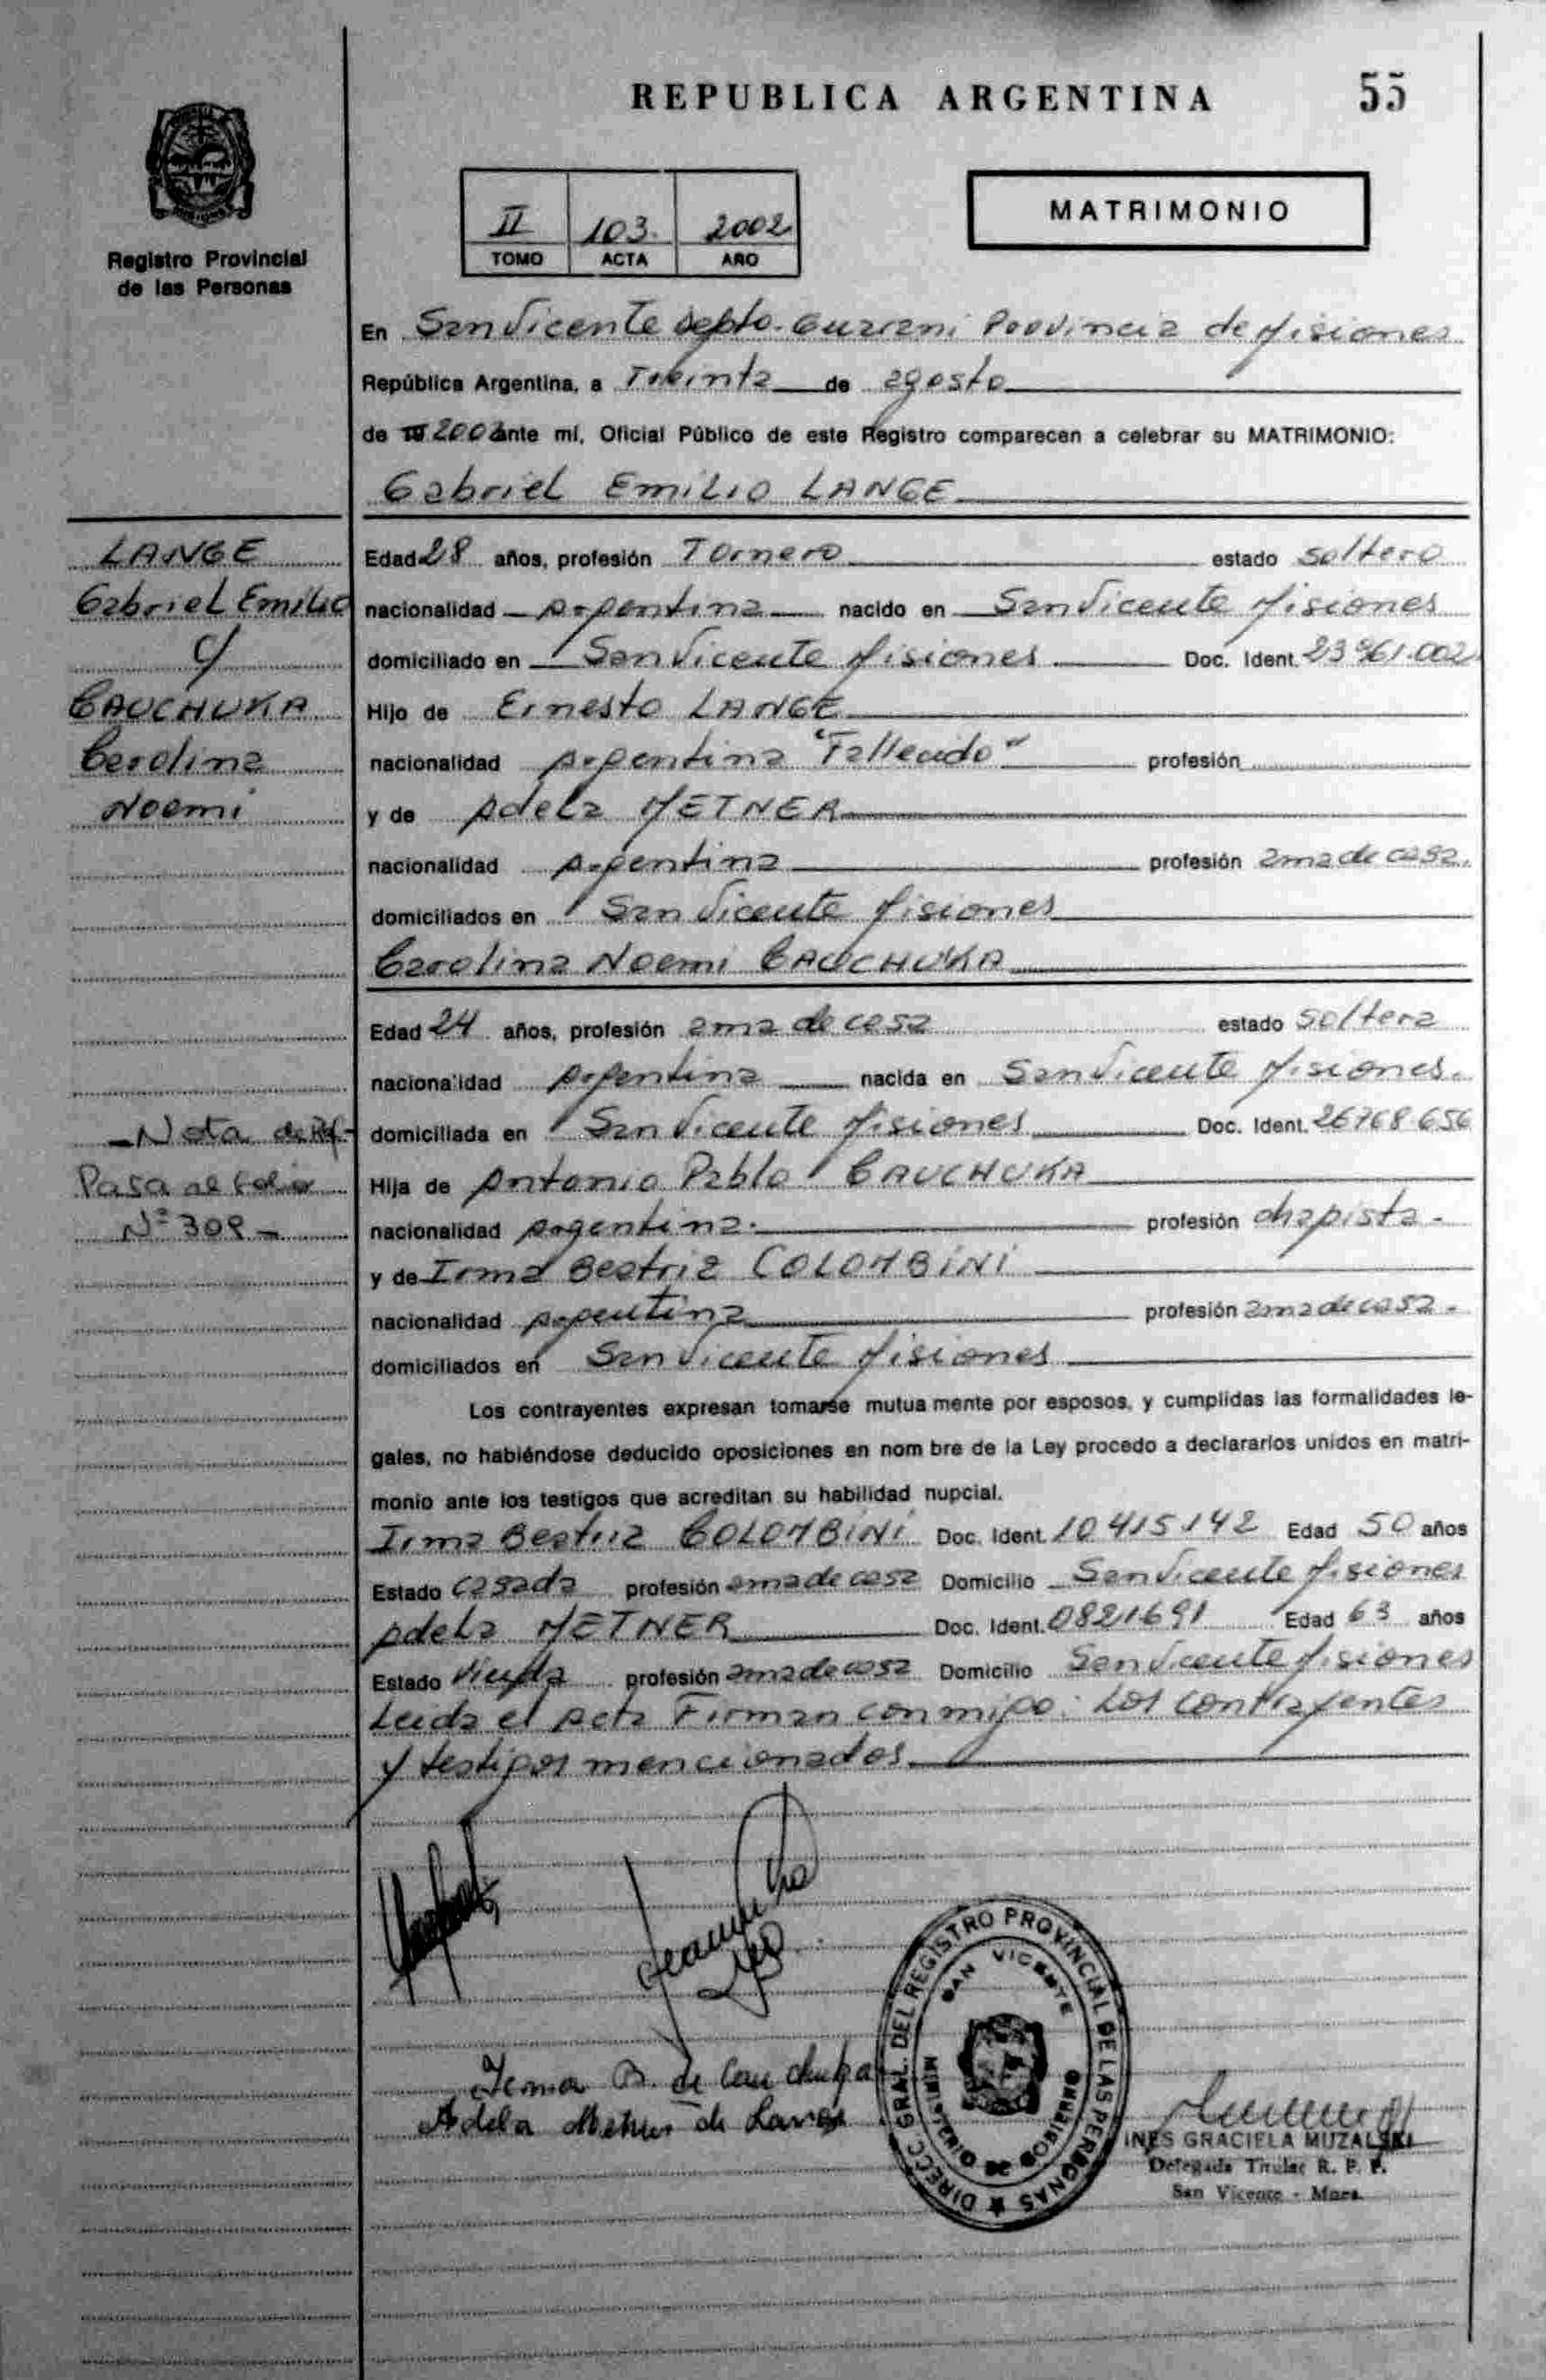 REPUBLICA ARGENTINA 55
Registro Provincial
de las Personas
II 103. 2002
TOMO ACTA AÑO
MATRIMONIO
En San Vicente Depto. Guarani Provincia de Misiones
República Argentina, a Treinta de agosto
de 19 2002 ante mí, Oficial Público de este Registro comparecen a celebrar su MATRIMONIO:
Gabriel Emilio LANGE
LANGE
Gabriel Emilio
c/
CAUCHUKA
Carolina
Noemi
Edad 28 años, profesión Tornero estado soltero
nacionalidad argentina nacido en San Vicente Misiones
domiciliado en San Vicente Misiones Doc. Ident. 23.961.002
Hijo de Ernesto LANGE
nacionalidad argentina "Fallecido" profesión
y de Adela METNER
nacionalidad argentina profesión ama de casa.
domiciliados en San Vicente Misiones
Carolina Noemi CAUCHUKA
Edad 24 años, profesión ama de casa estado soltera
nacionalidad argentina nacida en San Vicente Misiones.
domiciliada en San Vicente Misiones Doc. Ident. 26768.656
Hija de Antonio Pablo CAUCHUKA
nacionalidad argentina. profesión chapista.
y de Irma Beatriz COLOMBINI
nacionalidad argentina profesión ama de casa.
domiciliados en San Vicente Misiones
- Nota de Ref-
Pasa al folio
Nº 309 -
Los contrayentes expresan tomarse mutua mente por esposos, y cumplidas las formalidades le-
gales, no habiéndose deducido oposiciones en nom bre de la Ley procedo a declararlos unidos en matri-
monio ante los testigos que acreditan su habilidad nupcial.
Irma Beatriz COLOMBINI Doc. Ident. 10415142 Edad 50 años
Estado casada profesión ama de casa Domicilio San Vicente Misiones
Adela METNER Doc. Ident. 0821691 Edad 63 años
Estado Viuda profesión ama de casa Domicilio San Vicente Misiones
Leida el Acta Firman conmigo: Los contrayentes
y testigos mencionados
Irma B. de Cauchuka
Adela Metner de Lange
DIRECC. GRAL. DEL REGISTRO PROVINCIAL DE LAS PERSONAS
SAN VICENTE
MINISTERIO DE GOBIERNO
INES GRACIELA MUZALSKI
Delegada Titular R. P. P.
San Vicente - Mnes.